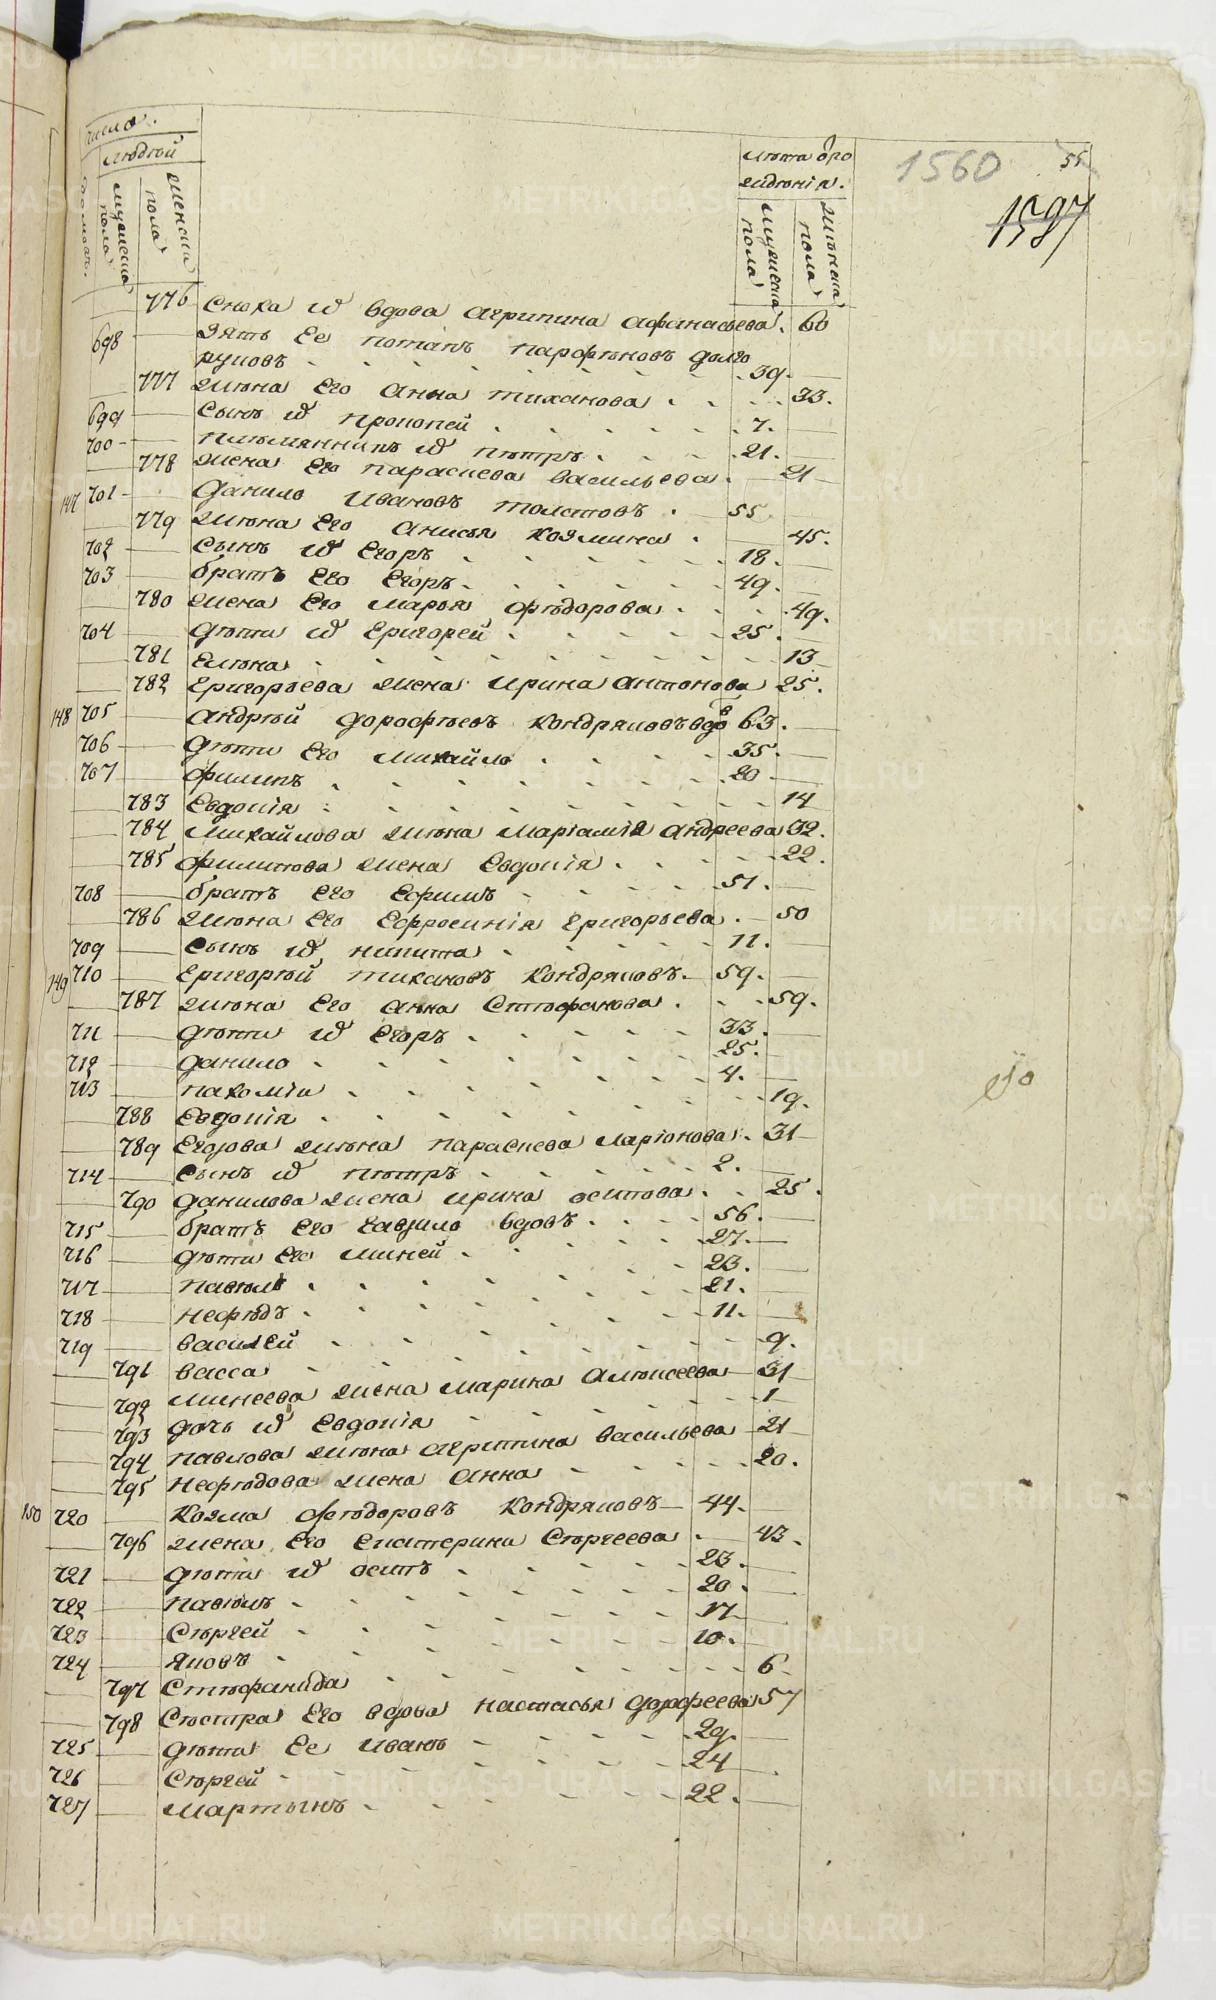 число.
людѣй
мужеска пола
женска пола
лѣта ѿро
жденія.
мужеска пола
женска пола
1560
55
776 сноха иѡ вдова агрипина афанасьева. 60
698 зять ее потапъ парфѣновъ долго
руковъ 39.
777 жѣна его анна тиханова 33.
699 сынъ иѡ прокопей 7.
700 плѣмянникъ иѡ пѣтръ 21.
778 жена его параскева васильева 21
147 701 данило ивановъ толстовъ 55
779 жѣна его анисья козмина 45.
702 сынъ иѡ егоръ 18.
703 братъ его егоръ 49.
780 жена его марья фѣдорова 49.
704 дѣти иѡ григорей 25.
781 елѣна 13
782 григорьева жена ирина антонова 25.
148 705 андрѣй дорофѣевъ кондряковъ вдовъ 63.
706 дѣти его михайло 35.
707 филипъ 20
783 евдокія 14
784 михайлова жѣна маріамія андреева 32.
785 филипова жена евдокія 22.
708 братъ его ефимъ 51.
786 жѣна его ефросинія григорьева 50
709 сынъ иѡ никита 11.
149 710 григорѣй тихановъ кондряковъ 59.
787 жѣна его анна стѣфанова 59.
711 дѣти иѡ егоръ 33.
712 данило 25.
713 пахомія 4.
788 евдокія 19.
789 егорова жѣна параскева ларіонова 31
714 сынъ иѡ пѣтръ 2.
790 данилова жена ирина осипова 25.
715 братъ его гаврило вдовъ 56.
716 дѣти его миней 27.
717 павѣлъ 23.
718 нефѣдъ 21.
719 василей 11.
791 васса 9.
792 минеева жена марина алѣксеева 31
793 дочь иѡ евдокія 1
794 павлова жѣна агрипина васильева 21
795 нефѣдова жена анна 20.
150 720 козма фѣдоровъ кондряковъ 44.
796 жена его екатерина сѣргеева 43.
721 дѣти иѡ осипъ 23.
722 павѣлъ 20.
723 сѣргей 17
724 яковъ 10.
797 стѣфанида 6
798 сѣстра его вдова настасья дорофеева 57
725 дѣти ее иванъ 29.
726 сѣргей 24
727 мартынъ 22.
METRIKI.GASO-URAL.RU